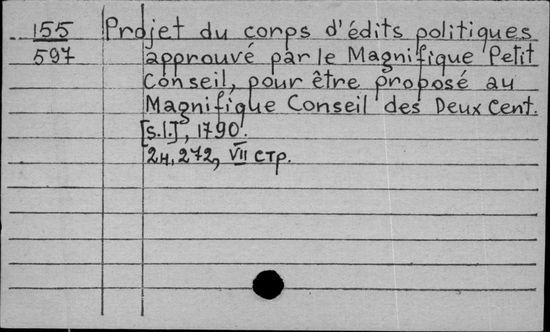 155
597
Projet du corps d'édits politiques
approuvé par le Magnifique Petit
Conseil, pour être proposé au
Magnifique Conseil des Deux Cent.
[s.l.], 1790.
2н, 272, VII стр.